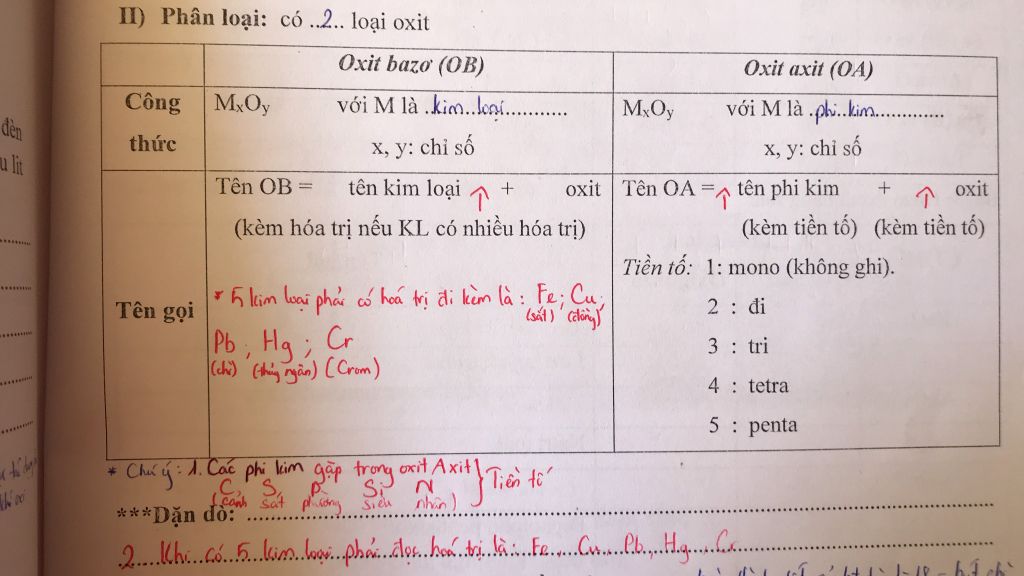 II) Phân loại: có ..2.. loại oxit
Oxit bazơ (OB)
Oxit axit (OA)
Công thức
MxOy với M là ..kim..loại............
x, y: chỉ số
MxOy với M là .phi..kim..............
x, y: chỉ số
Tên gọi
Tên OB = tên kim loại ↑ + oxit
(kèm hóa trị nếu KL có nhiều hóa trị)
* 5 kim loại phải có hoá trị đi kèm là : Fe; Cu;
(sắt) (đồng)
Pb ; Hg ; Cr
(chì) (thủy ngân) (Crom)
Tên OA = ↑ tên phi kim + ↑ oxit
(kèm tiền tố) (kèm tiền tố)
Tiền tố: 1: mono (không ghi).
2 : đi
3 : tri
4 : tetra
5 : penta
* Chú ý : 1. Các phi kim gặp trong oxit Axit } Tiền tố
C, S, P, Si, N
(cảnh sát phường siêu nhân)
***Dặn dò: ........................
2...Khi có 5 kim loại phải đọc hoá trị là : Fe, Cu, Pb, Hg, Cr
đèn
lít